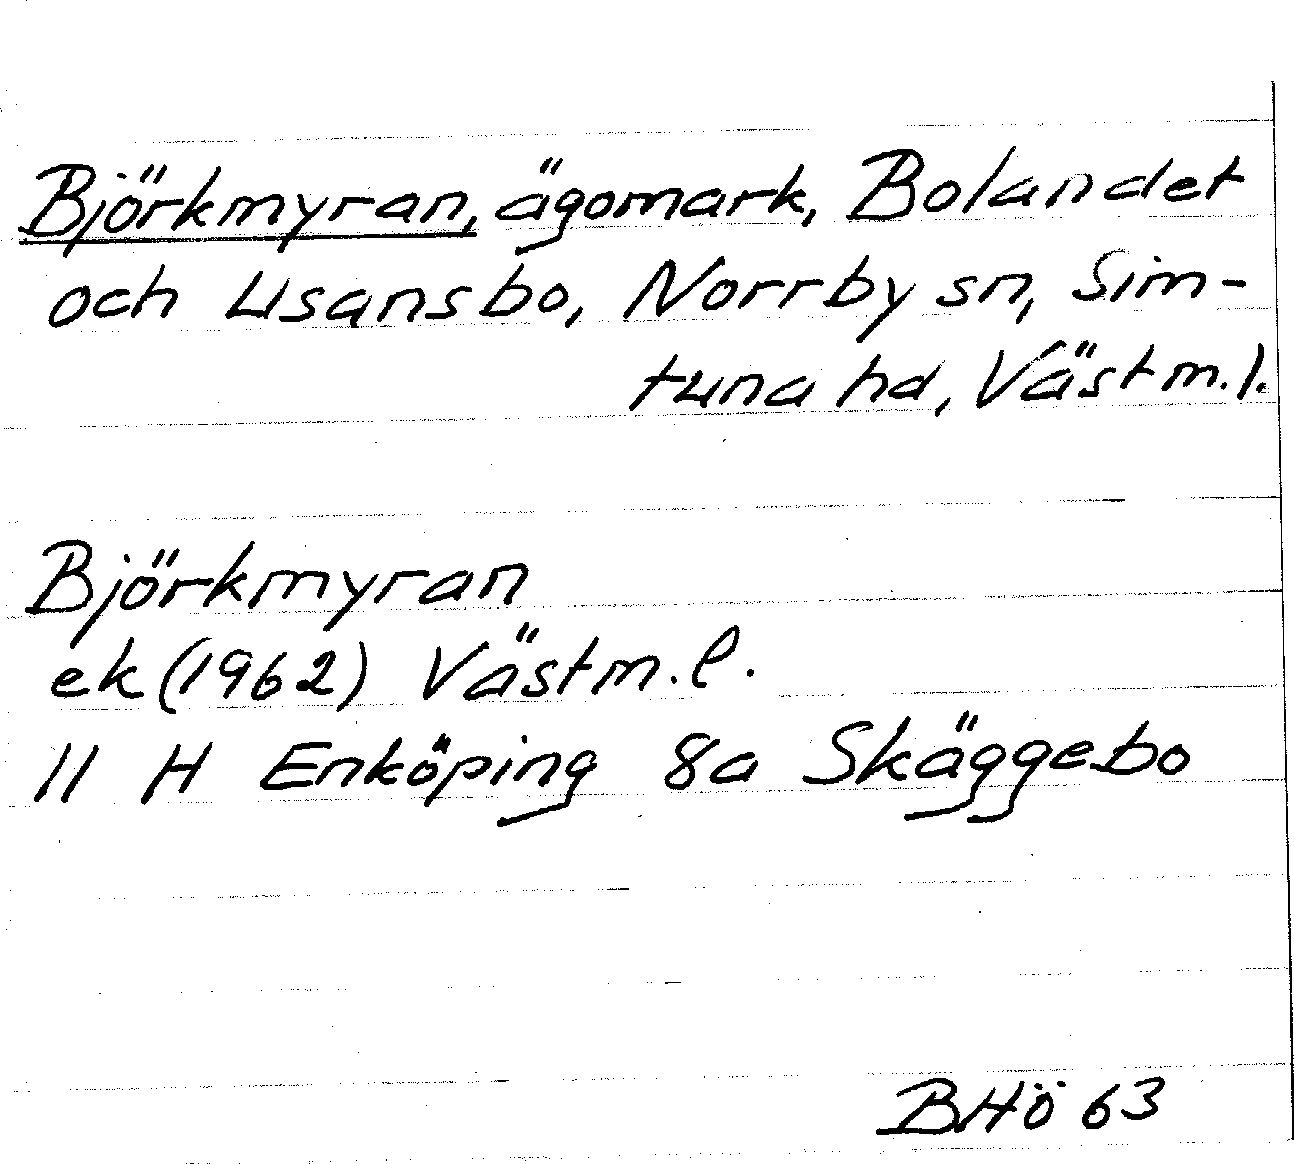 Björkmyran, ägomark, Bolandet
och Lisansbo, Norrby sn, Sim-
tuna hd, Västm.l.
Björkmyran
ek (1962) Västm.l.
11 H Enköping 8a Skäggebo
BHö 63